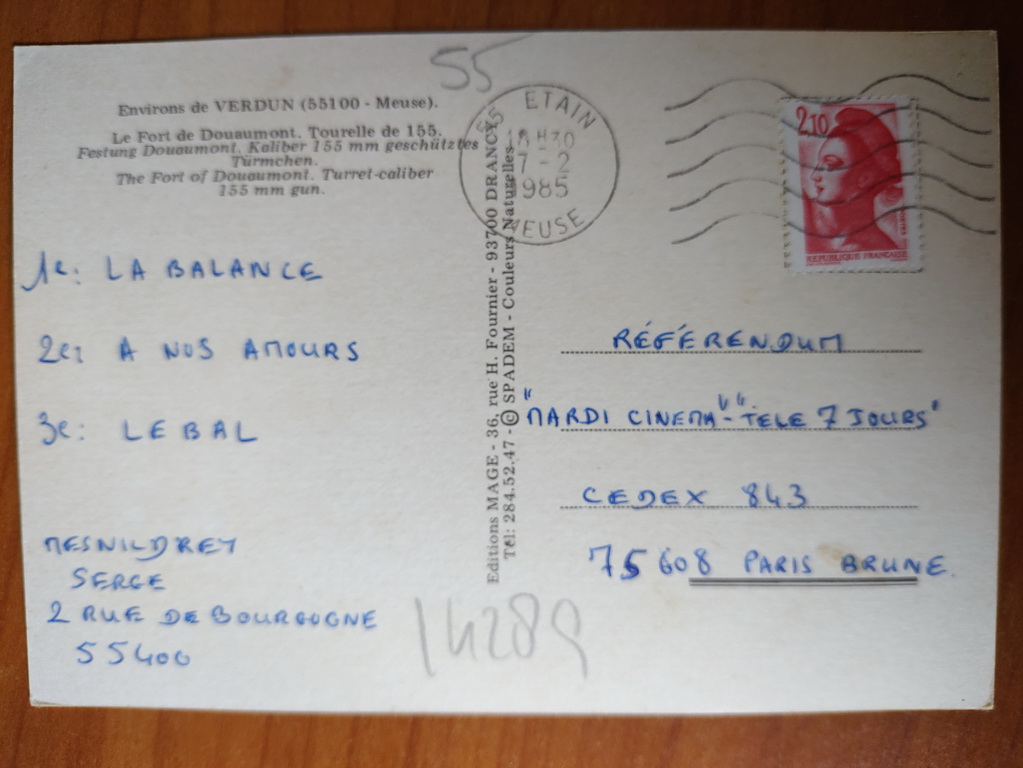 55
Environs de VERDUN (55100 - Meuse).
Le Fort de Douaumont. Tourelle de 155.
Festung Douaumont. Kaliber 155 mm geschütztes
Türmchen.
The Fort of Douaumont. Turret-caliber
155 mm gun.
1e: LA BALANCE
2e: A NOS AMOURS
3e: LE BAL
MESNILDREY
SERGE
2 RUE DE BOURGOGNE
55400
14289
Editions MAGE - 36, rue H. Fournier - 93700 DRANCY
Tél: 284.52.47 - © SPADEM - Couleurs Naturelles
55 ETAIN
7 - 2
1985
MEUSE
2,10
REPUBLIQUE FRANÇAISE
RÉFÉRENDUM
"MARDI CINEMA" - "TELE 7 JOURS"
CEDEX 843
75608 PARIS BRUNE.